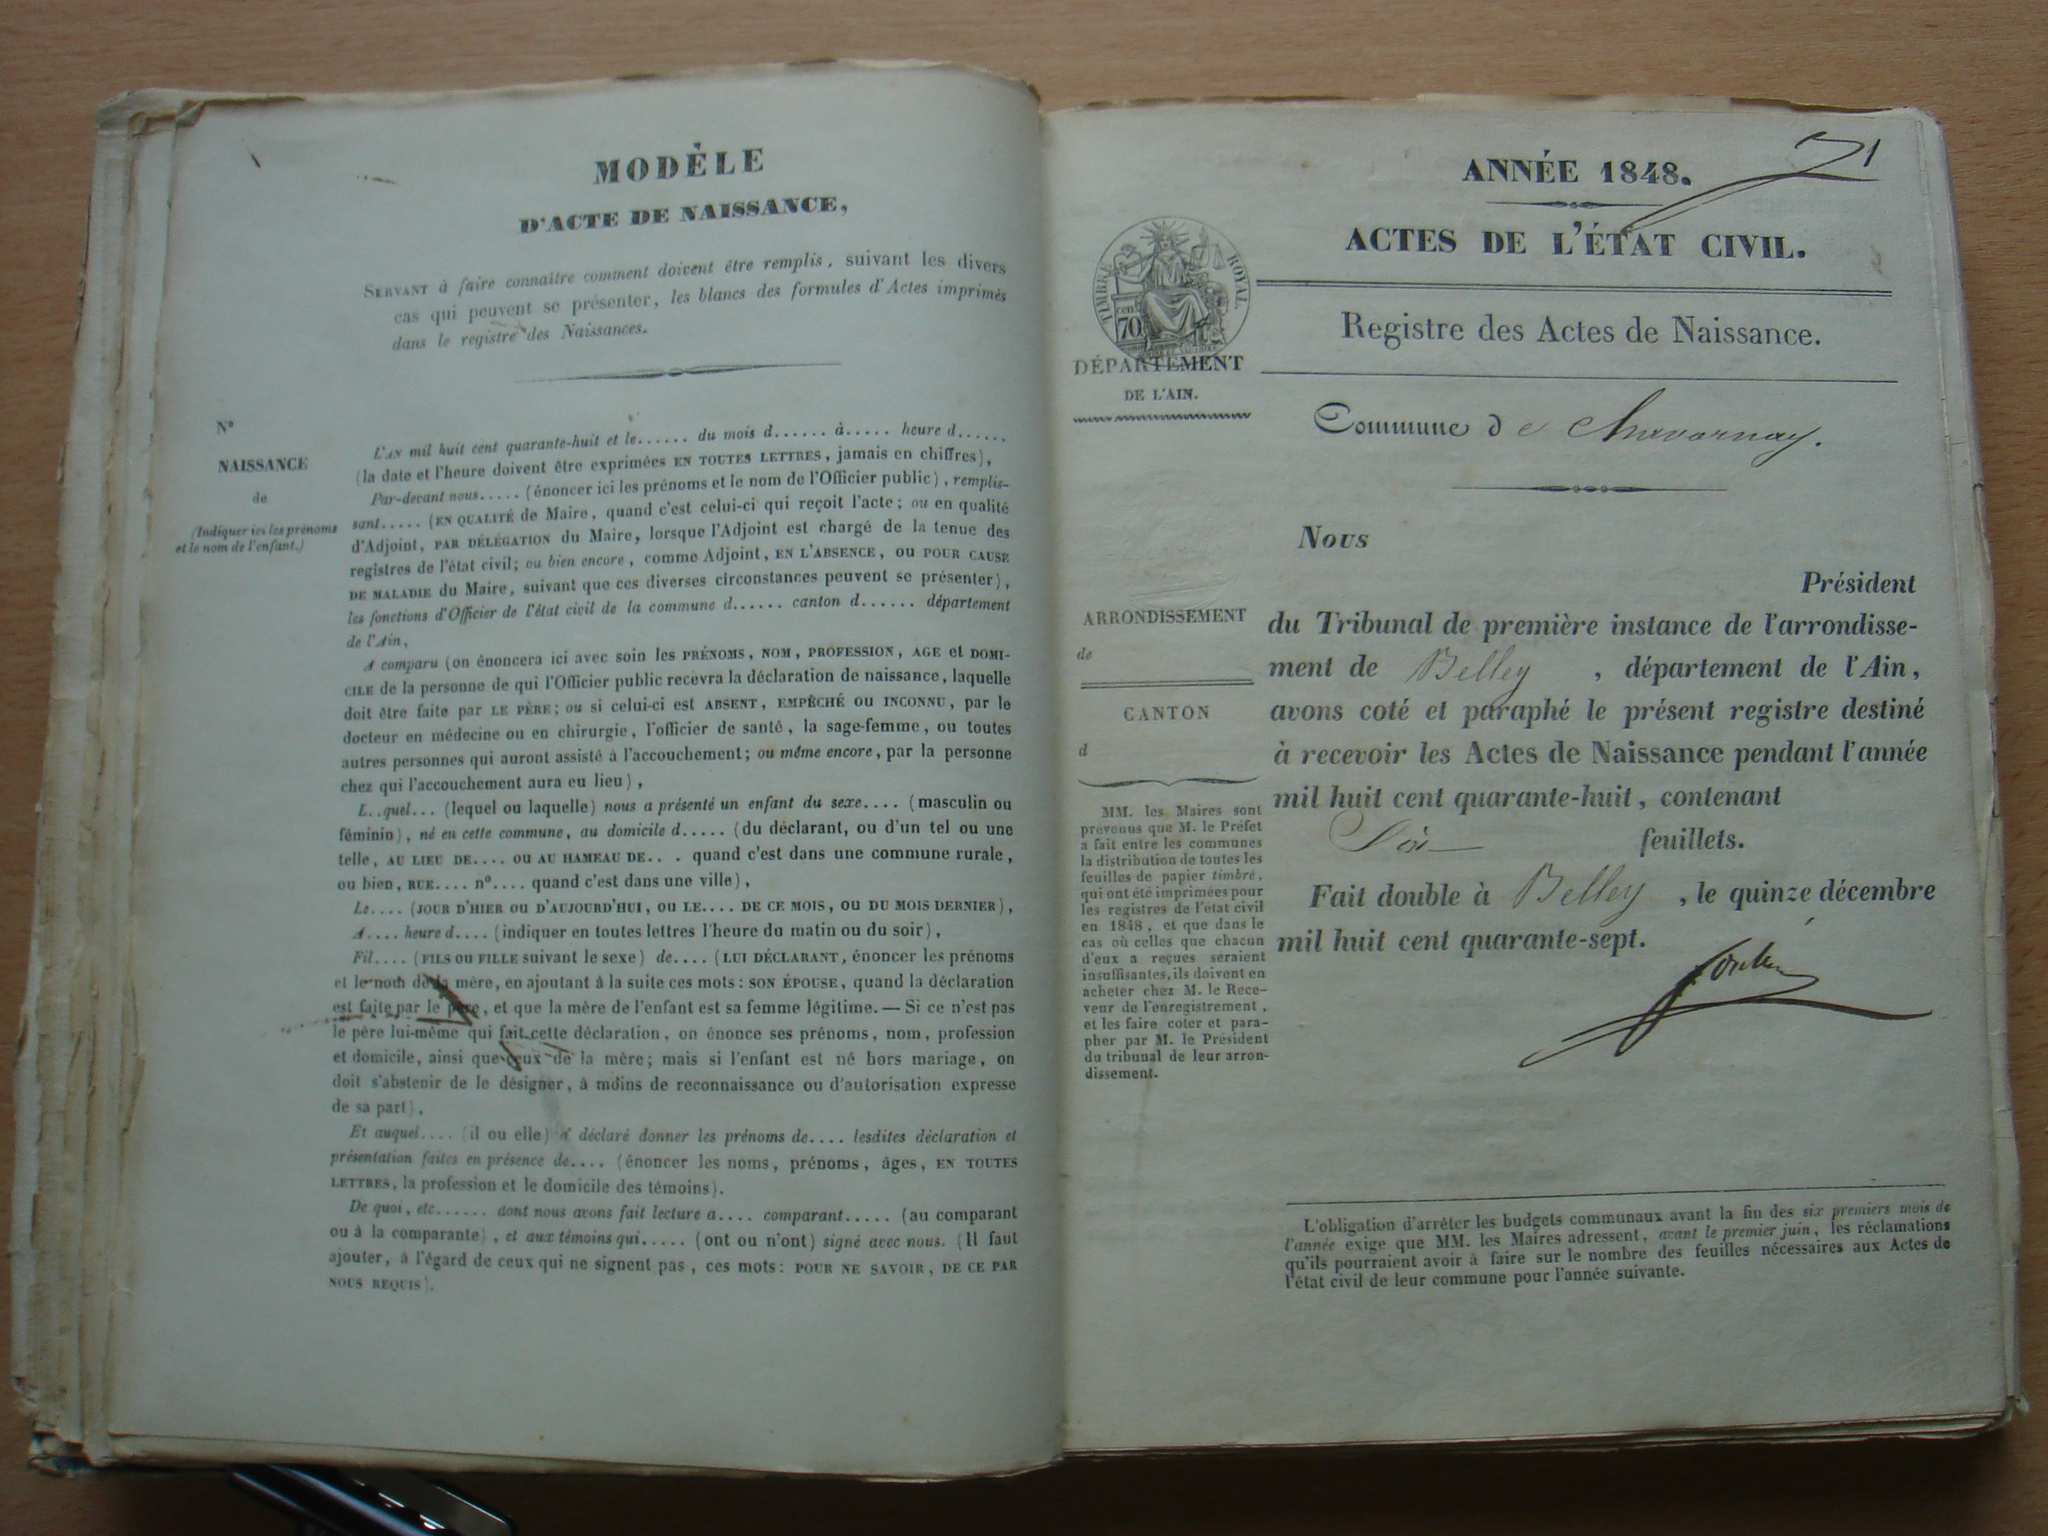 MODÈLE
D'ACTE DE NAISSANCE,
SERVANT à faire connaître comment doivent être remplis, suivant les divers
cas qui peuvent se présenter, les blancs des formules d'Actes imprimés
dans le registre des Naissances.
N°
NAISSANCE
de
(Indiquer ici les prénoms
et le nom de l'enfant.)
L'AN mil huit cent quarante-huit et le...... du mois d...... à..... heure d......
(la date et l'heure doivent être exprimées EN TOUTES LETTRES, jamais en chiffres),
Par-devant nous..... (énoncer ici les prénoms et le nom de l'Officier public), remplis-
sant..... (EN QUALITÉ de Maire, quand c'est celui-ci qui reçoit l'acte; ou en qualité
d'Adjoint, PAR DÉLÉGATION du Maire, lorsque l'Adjoint est chargé de la tenue des
registres de l'état civil; ou bien encore, comme Adjoint, EN L'ABSENCE, OU POUR CAUSE
DE MALADIE du Maire, suivant que ces diverses circonstances peuvent se présenter),
les fonctions d'Officier de l'état civil de la commune d...... canton d...... département
de l'Ain,
A comparu (on énoncera ici avec soin les PRÉNOMS, NOM, PROFESSION, AGE et DOMI-
CILE de la personne de qui l'Officier public recevra la déclaration de naissance, laquelle
doit être faite par LE PÈRE; ou si celui-ci est ABSENT, EMPÊCHÉ OU INCONNU, par le
docteur en médecine ou en chirurgie, l'officier de santé, la sage-femme, ou toutes
autres personnes qui auront assisté à l'accouchement; ou même encore, par la personne
chez qui l'accouchement aura eu lieu),
L..quel... (lequel ou laquelle) nous a présenté un enfant du sexe.... (masculin ou
féminin), né en cette commune, au domicile d..... (du déclarant, ou d'un tel ou une
telle, AU LIEU DE.... OU AU HAMEAU DE.. . quand c'est dans une commune rurale,
ou bien, RUE.... n°.... quand c'est dans une ville),
Le.... (JOUR D'HIER OU D'AUJOURD'HUI, OU LE.... DE CE MOIS, OU DU MOIS DERNIER),
A.... heure d.... (indiquer en toutes lettres l'heure du matin ou du soir),
Fil.... (FILS OU FILLE suivant le sexe) de.... (LUI DÉCLARANT, énoncer les prénoms
et le nom de la mère, en ajoutant à la suite ces mots: SON ÉPOUSE, quand la déclaration
est faite par le père, et que la mère de l'enfant est sa femme légitime. — Si ce n'est pas
le père lui-même qui fait cette déclaration, on énonce ses prénoms, nom, profession
et domicile, ainsi que ceux de la mère; mais si l'enfant est né hors mariage, on
doit s'abstenir de le désigner, à moins de reconnaissance ou d'autorisation expresse
de sa part),
Et auquel.... (il ou elle) a déclaré donner les prénoms de.... lesdites déclaration et
présentation faites en présence de.... (énoncer les noms, prénoms, âges, EN TOUTES
LETTRES, la profession et le domicile des témoins).
De quoi, etc...... dont nous avons fait lecture a.... comparant..... (au comparant
ou à la comparante), et aux témoins qui..... (ont ou n'ont) signé avec nous. (Il faut
ajouter, à l'égard de ceux qui ne signent pas, ces mots: POUR NE SAVOIR, DE CE PAR
NOUS REQUIS).
ANNÉE 1848.
ACTES DE L'ÉTAT CIVIL.
Registre des Actes de Naissance.
TIMBRE ROYAL
cen.
70
DÉPARTEMENT
DE L'AIN.
Commune de Chavornay.
Nous
Président
du Tribunal de première instance de l'arrondisse-
ment de Belley, département de l'Ain,
avons coté et paraphé le présent registre destiné
à recevoir les Actes de Naissance pendant l'année
mil huit cent quarante-huit, contenant
feuillets.
Fait double à Belley, le quinze décembre
mil huit cent quarante-sept.
ARRONDISSEMENT
de
CANTON
d
MM. les Maires sont
prévenus que M. le Préfet
a fait entre les communes
la distribution de toutes les
feuilles de papier timbré,
qui ont été imprimées pour
les registres de l'état civil
en 1848, et que dans le
cas où celles que chacun
d'eux a reçues seraient
insuffisantes, ils doivent en
acheter chez M. le Rece-
veur de l'enregistrement,
et les faire coter et para-
pher par M. le Président
du tribunal de leur arron-
dissement.
L'obligation d'arrêter les budgets communaux avant la fin des six premiers mois de
l'année exige que MM. les Maires adressent, avant le premier juin, les réclamations
qu'ils pourraient avoir à faire sur le nombre des feuilles nécessaires aux Actes de
l'état civil de leur commune pour l'année suivante.